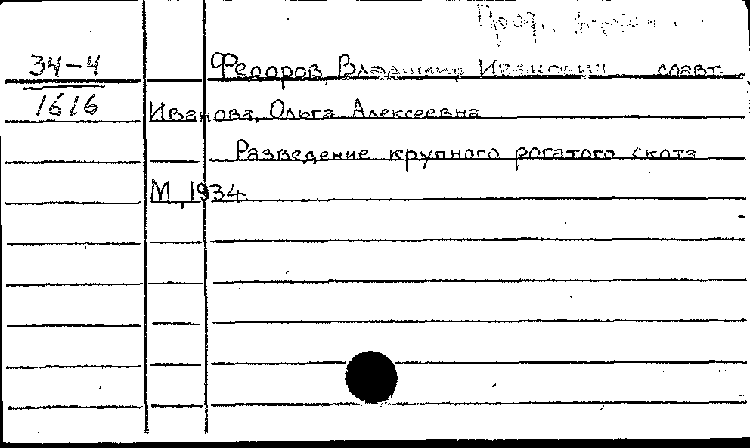 Проф.
34-4
Федоров, Владимир Иванович соавт.
1616
Иванова, Ольга Алексеевна
Разведение крупного рогатого скота
М., 1934